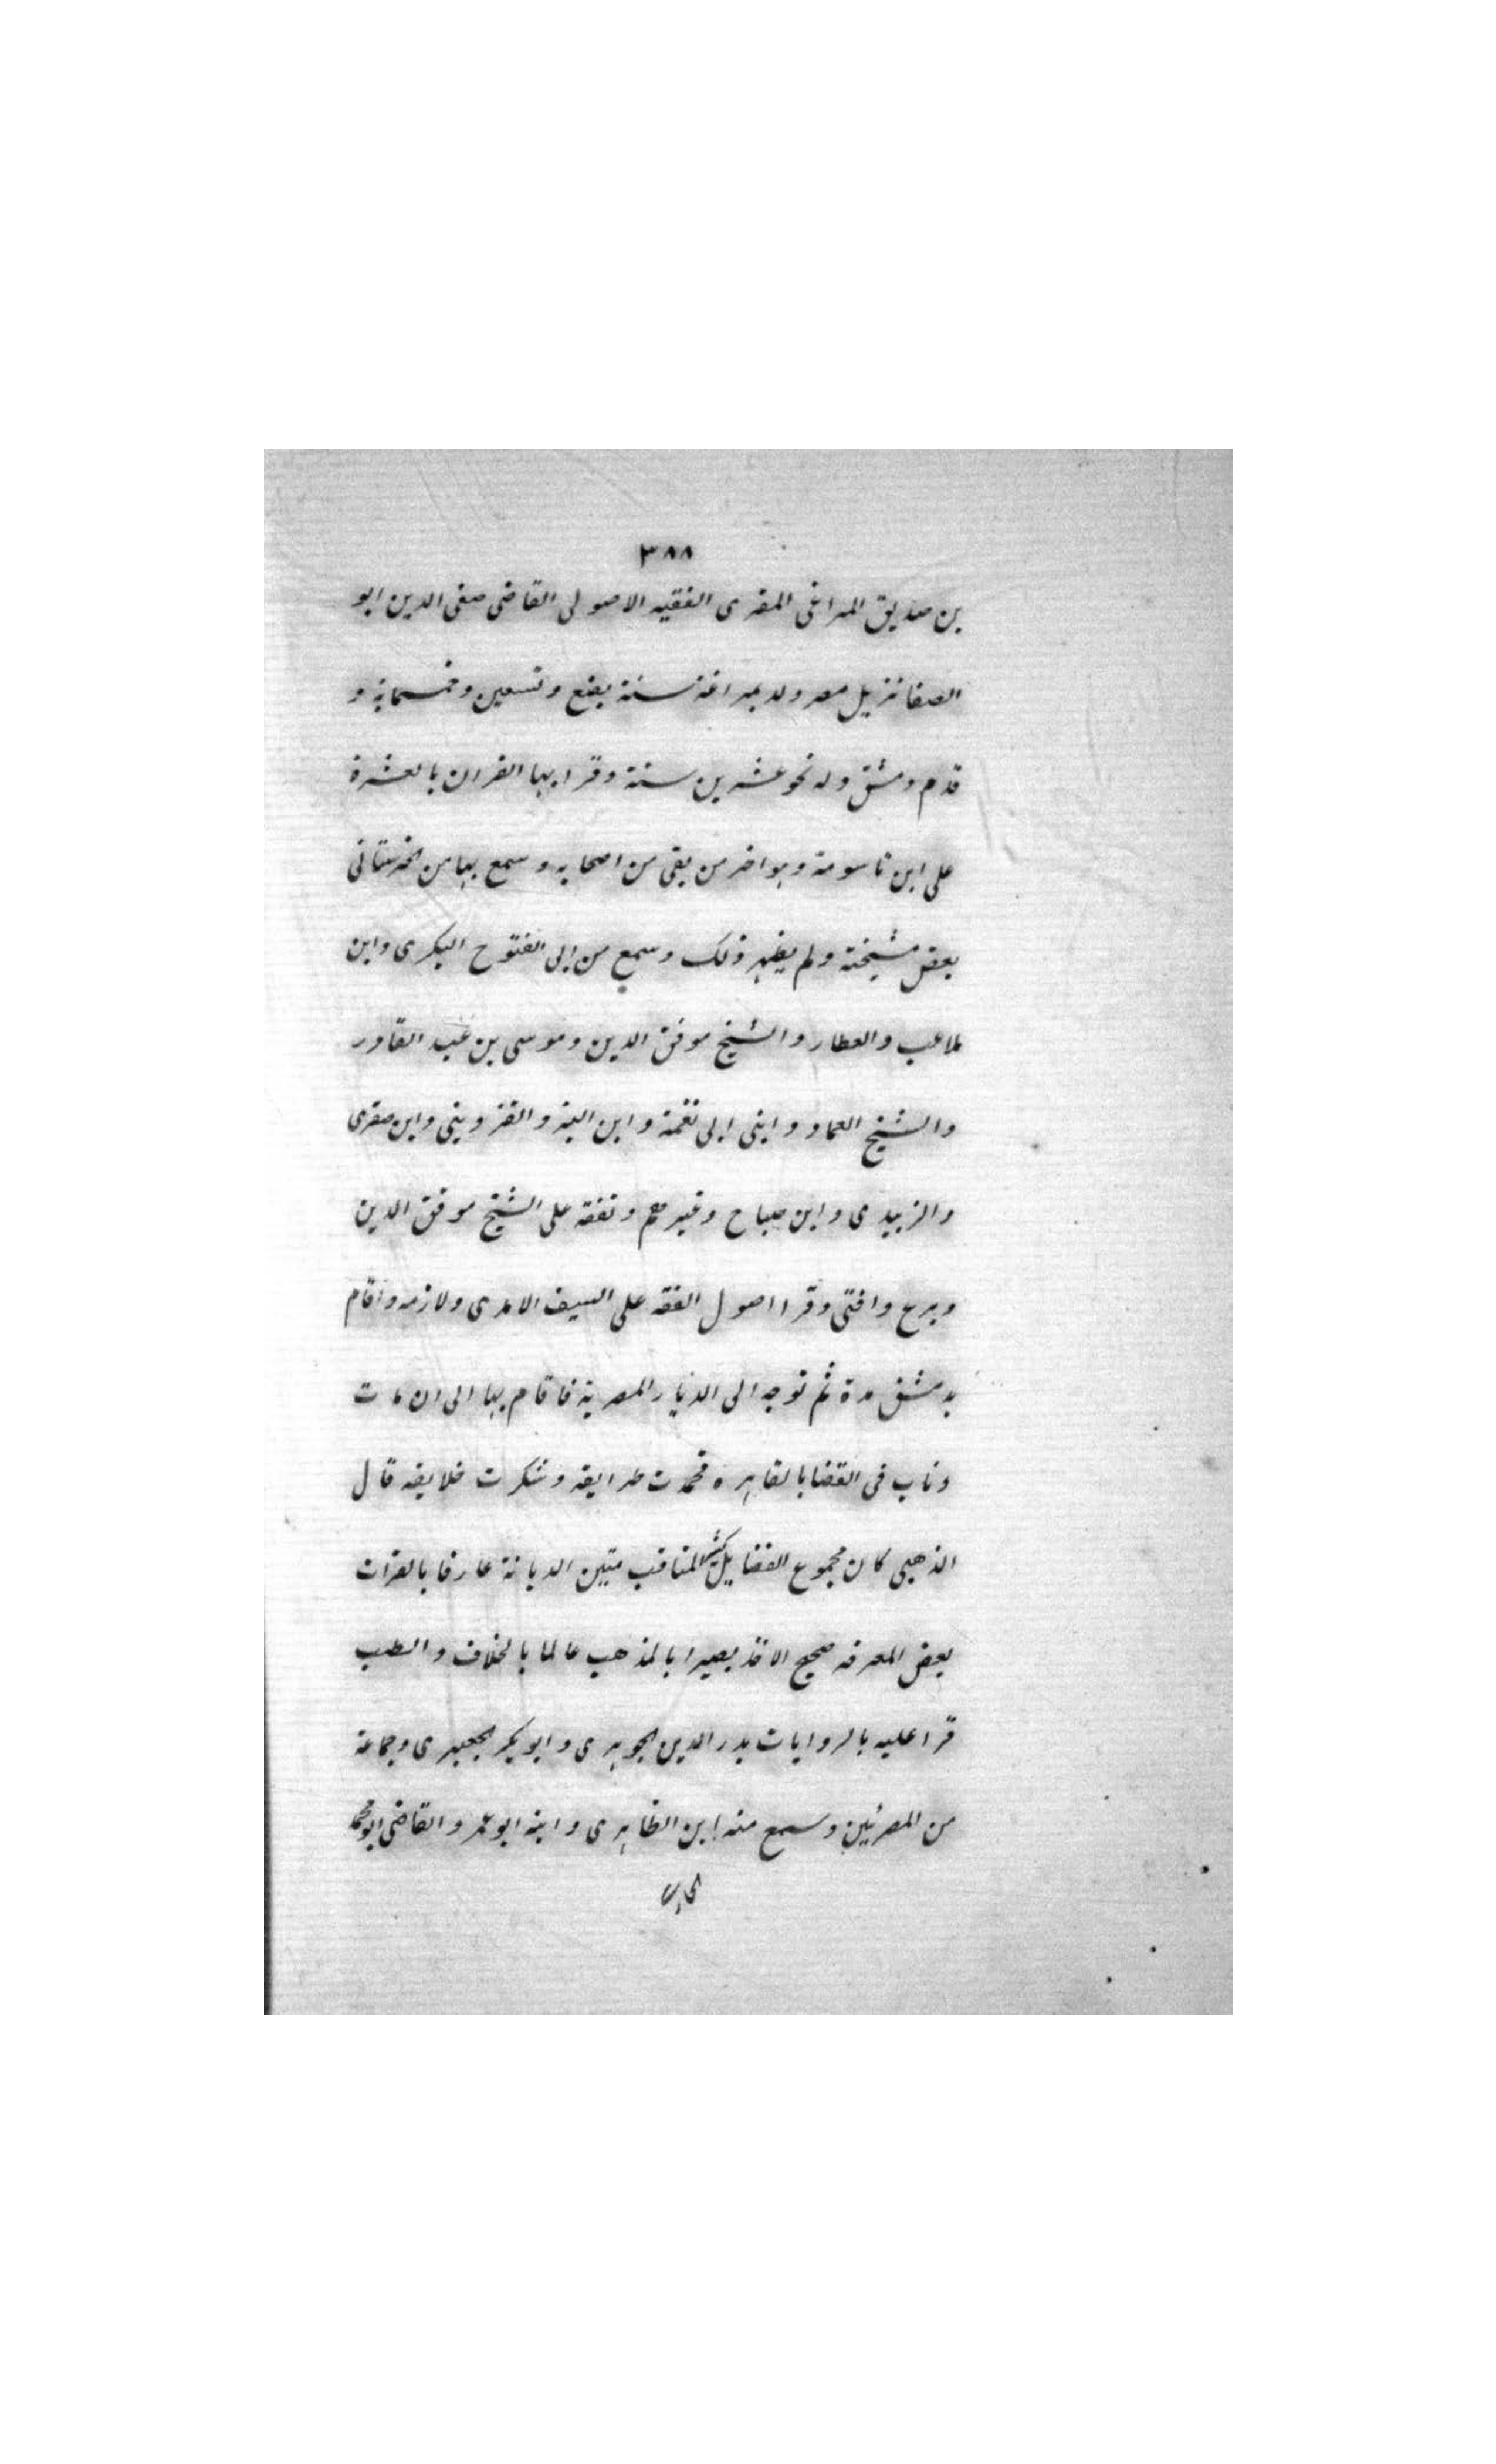 ٣٨٨
بن صديق المراغى المقرى الفقيه الاصولى القاضى صفى الدين ابو
الصفا نزيل مصر ولد بمراغة سنة بضع وتسعين وخمسماية و
قدم دمشق وله نحو عشرين سنة وقرا بها القران بالعشرة
على ابن ناسوية وهو اخر من بقى من اصحابه وسمع بها من الحرستانى
بعض مشيخته ولم يظهر ذلك وسمع من ابى الفتوح البكرى وابن
ملاعب والعطار والشيخ موفق الدين وموسى بن عبد القادر
والشيخ العماد وابنى ابى نقمة وابن البن والقزوينى وابن صقرى
والزبيدى وابن صباح وغيرهم وتفقه على الشيخ موفق الدين
وبرع وافتى وقرا اصول الفقه على السيف الامدى ولازمه واقام
بدمشق مدة ثم توجه الى الديار المصرية فاقام بها الى ان مات
وناب فى القضا بالقاهره فحمدت طرايقه وشكرت خلايقه قال
الذهبى كان مجموع الفضايل كثير المناقب متين الديانة عارفا بالقرات
بعض المعرفه صحيح الاخذ بصيرا بالمذهب عالما بالخلاف والطب
قرا عليه بالروايات بدر الدين الجوهرى وابو بكر الجعبرى وجماعة
من المصرئين وسمع منه ابن الظاهرى وابنه ابو عمرو القاضى ابو محمد